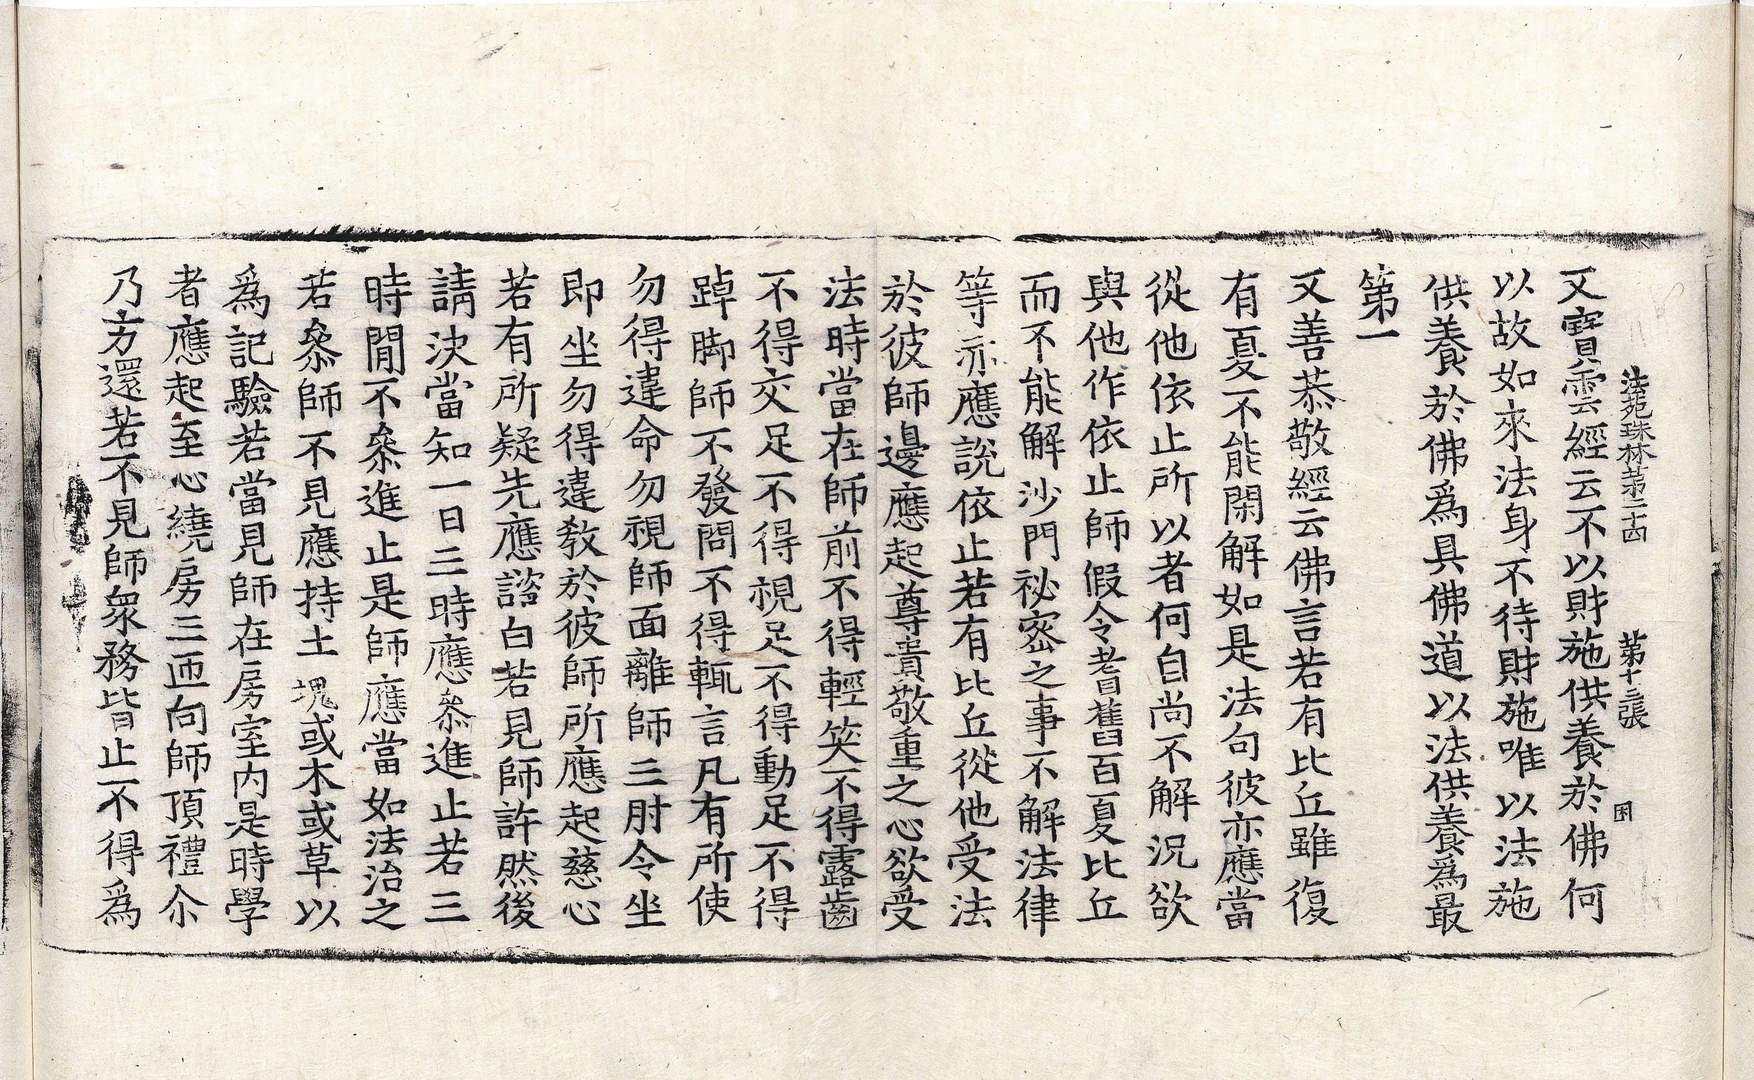 法苑珠林第二十四 第十三張 囷
又寶雲經云不以財施供養於佛何
以故如來法身不待財施唯以法施
供養於佛爲具佛道以法供養爲最
第一
又善恭敬經云佛言若有比丘雖復
有夏不能閑解如是法句彼亦應當
從他依止所以者何自尚不解況欲
與他作依止師假令耆舊百夏比丘
而不能解沙門祕密之事不解法律
等亦應說依止若有比丘從他受法
於彼師邊應起尊貴敬重之心欲受
法時當在師前不得輕笑不得露齒
不得交足不得視足不得動足不得
踔脚師不發問不得輒言凡有所使
勿得違命勿視師面離師三肘令坐
即坐勿得違教於彼師所應起慈心
若有所疑先應諮白若見師許然後
請決當知一日三時應叅進止若三
時閒不叅進止是師應當如法治之
若叅師不見應持土塊或木或草以
爲記驗若當見師在房室內是時學
者應起至心繞房三迊向師頂禮尒
乃方還若不見師衆務皆止不得爲